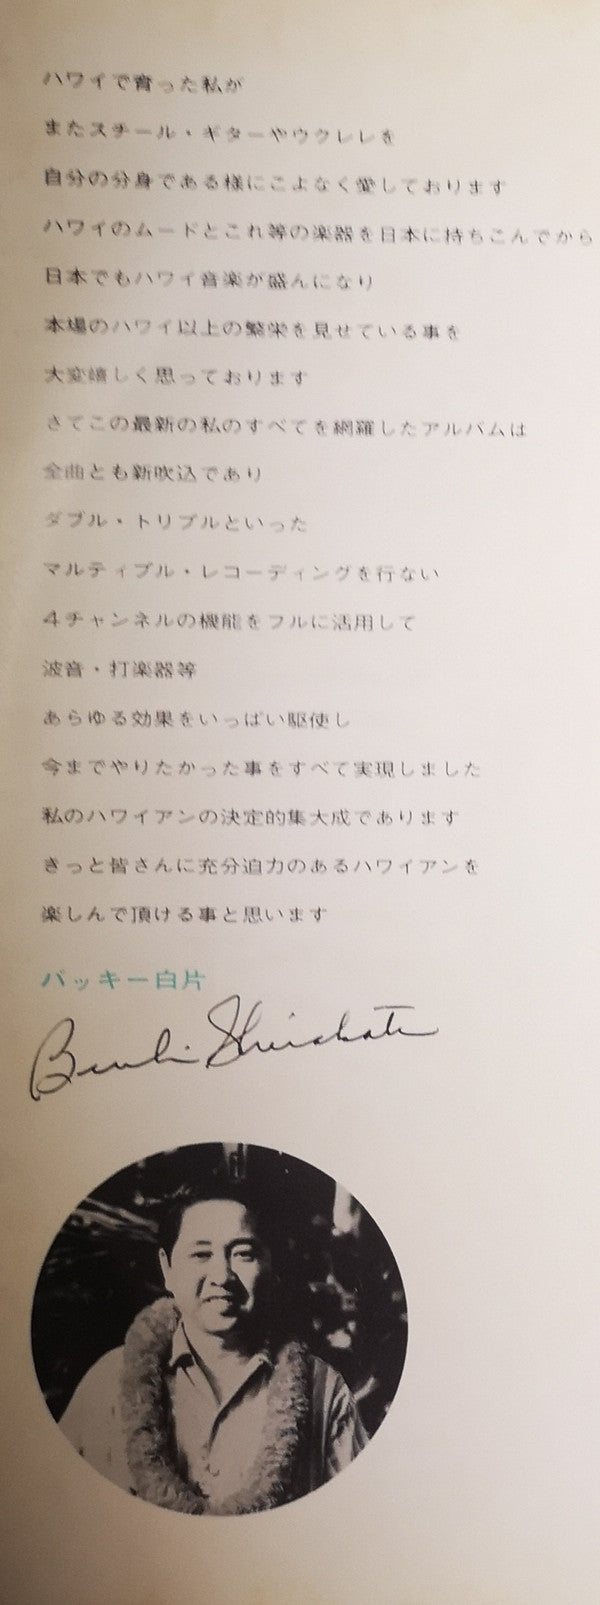 ハワイで育った私が
またスチール・ギターやウクレレを
自分の分身である様にこよなく愛しております
ハワイのムードとこれ等の楽器を日本に持ちこんでから
日本でもハワイ音楽が盛んになり
本場のハワイ以上の繁栄を見せている事を
大変嬉しく思っております
さてこの最新の私のすべてを網羅したアルバムは
全曲とも新吹込であり
ダブル・トリプルといった
マルティプル・レコーディングを行ない
4チャンネルの機能をフルに活用して
波音・打楽器等
あらゆる効果をいっぱい駆使し
今までやりたかった事をすべて実現しました
私のハワイアンの決定的集大成であります
きっと皆さんに充分迫力のあるハワイアンを
楽しんで頂ける事と思います
バッキー白片
Buckie Shirakata